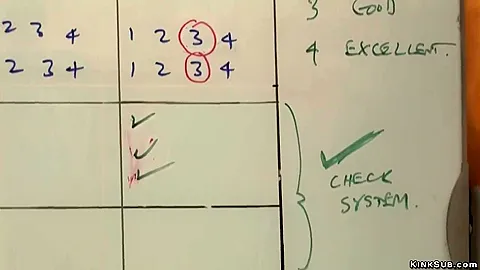 3 GOOD
2 3 4 1 2 3 4
4 EXCELLENT.
2 3 4 1 2 3 4
CHECK
SYSTEM.
KINKSUB.COM